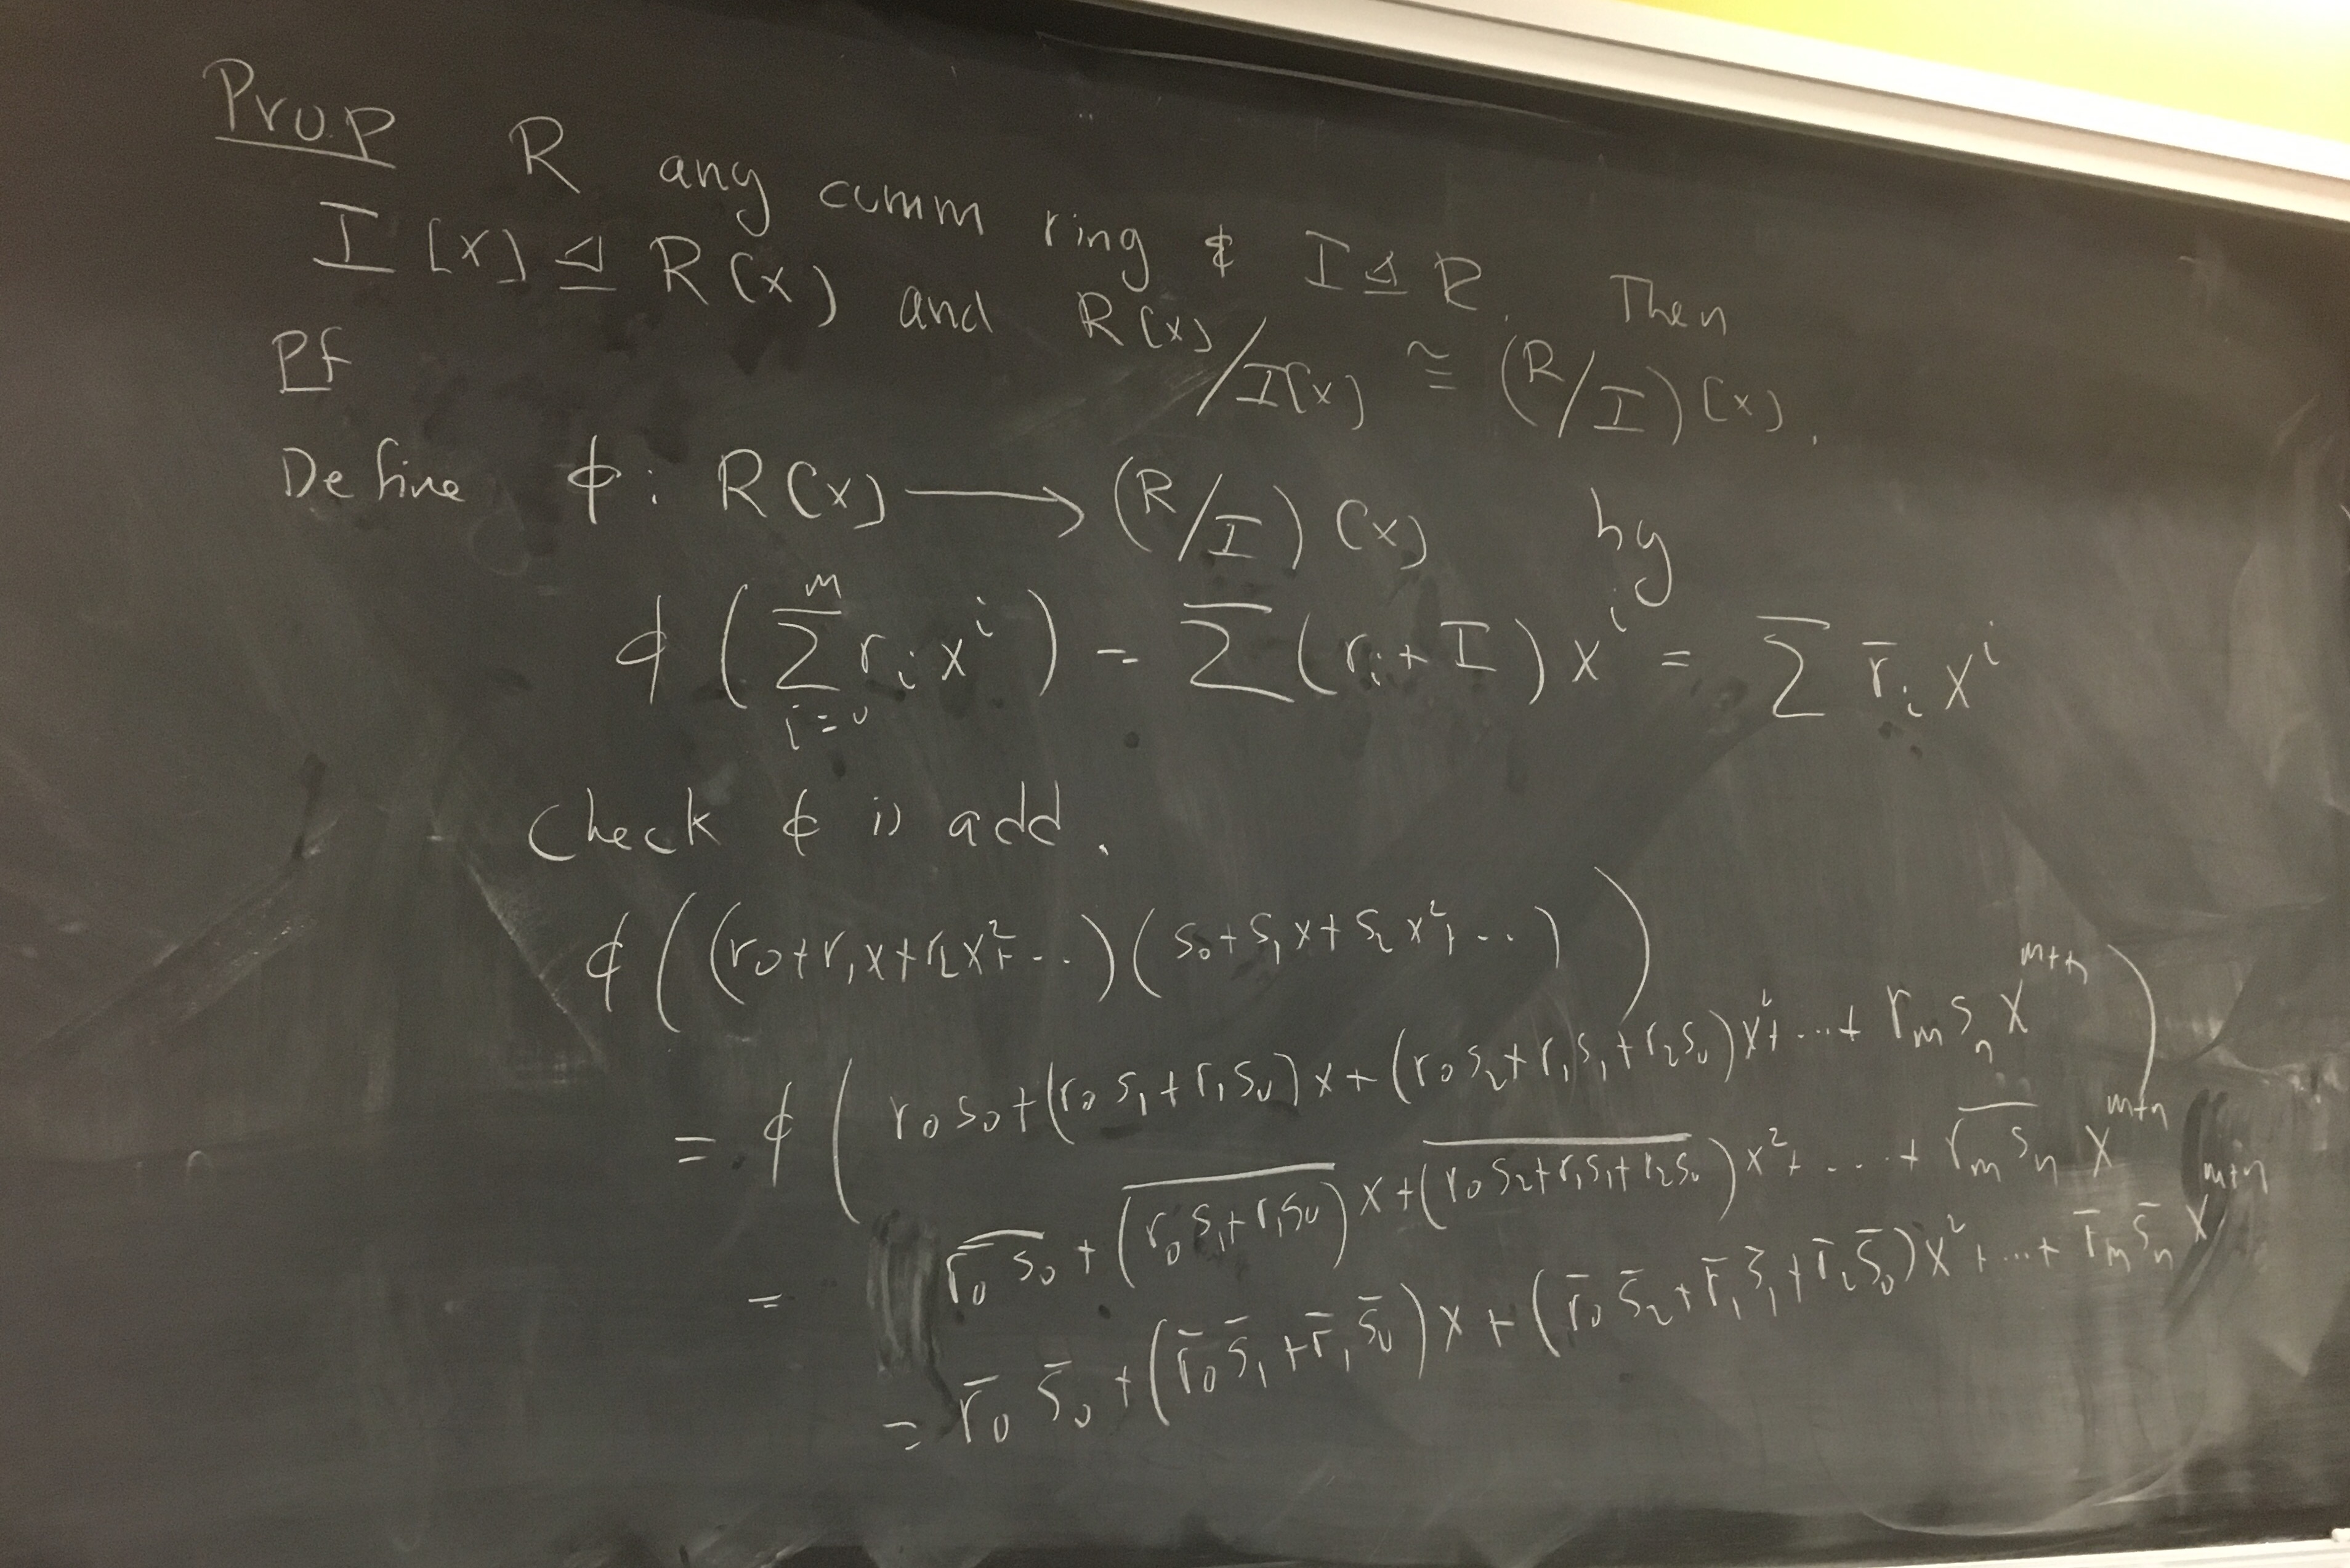 Prop R any comm ring & I ⊴ R. Then
I[x] ⊴ R[x] and R[x]/I[x] ≅ (R/I)[x].
Pf
Define ϕ: R[x] ⟶ (R/I)[x] by
ϕ(∑_{i=0}^{m} r_i x^i) = ∑(r_i + I)x^i = ∑ r̄_i x^i
Check ϕ is add.
ϕ((r_0+r_1x+r_2x^2+...)(s_0+s_1x+s_2x^2+...))
= ϕ(r_0s_0+(r_0s_1+r_1s_0)x+(r_0s_2+r_1s_1+r_2s_0)x^2+...+r_ms_nx^{m+n})
= \overline{r_0s_0}+(\overline{r_0s_1+r_1s_0})x+(\overline{r_0s_2+r_1s_1+r_2s_0})x^2+...+\overline{r_ms_n}x^{m+n}
= r̄_0 s̄_0+(r̄_0s̄_1+r̄_1s̄_0)x+(r̄_0s̄_2+r̄_1s̄_1+r̄_2s̄_0)x^2+...+r̄_ms̄_nx^{m+n}